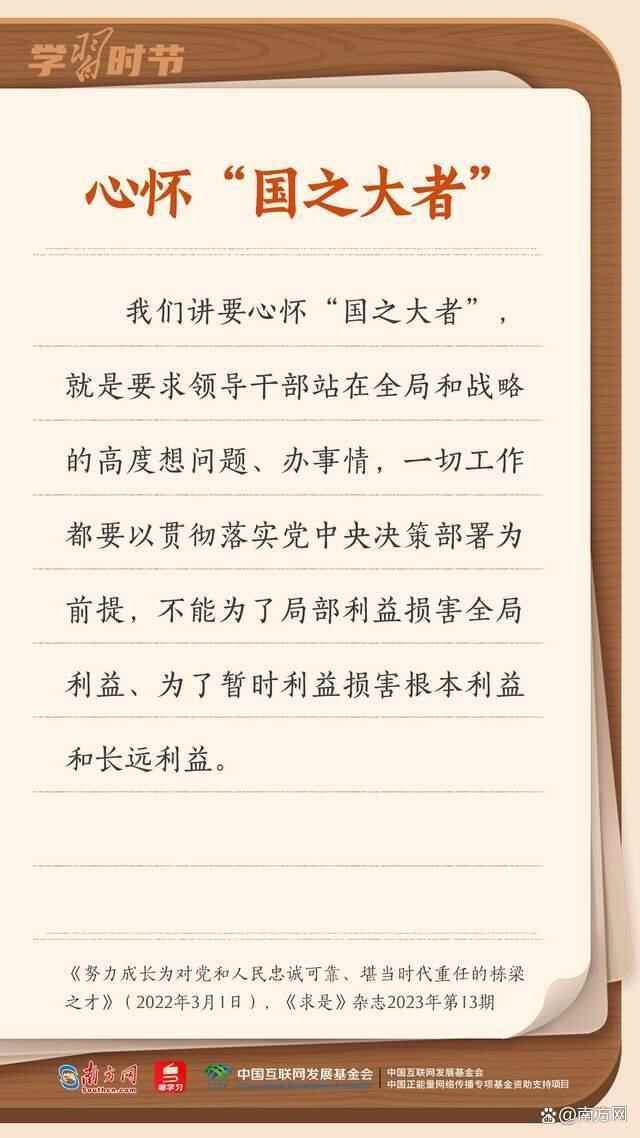 学习时节
心怀“国之大者”
我们讲要心怀“国之大者”，
就是要求领导干部站在全局和战略
的高度想问题、办事情，一切工作
都要以贯彻落实党中央决策部署为
前提，不能为了局部利益损害全局
利益、为了暂时利益损害根本利益
和长远利益。
《努力成长为对党和人民忠诚可靠、堪当时代重任的栋梁
之才》（2022年3月1日），《求是》杂志2023年第13期
南方网
Southcn.com
粤学习
中国互联网发展基金会
中国互联网发展基金会
中国正能量网络传播专项基金资助支持项目
@南方网